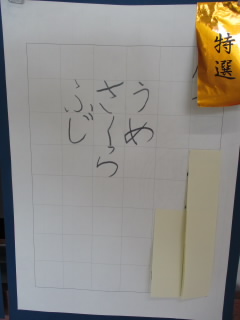 特選
うめ
さくら
ふじ